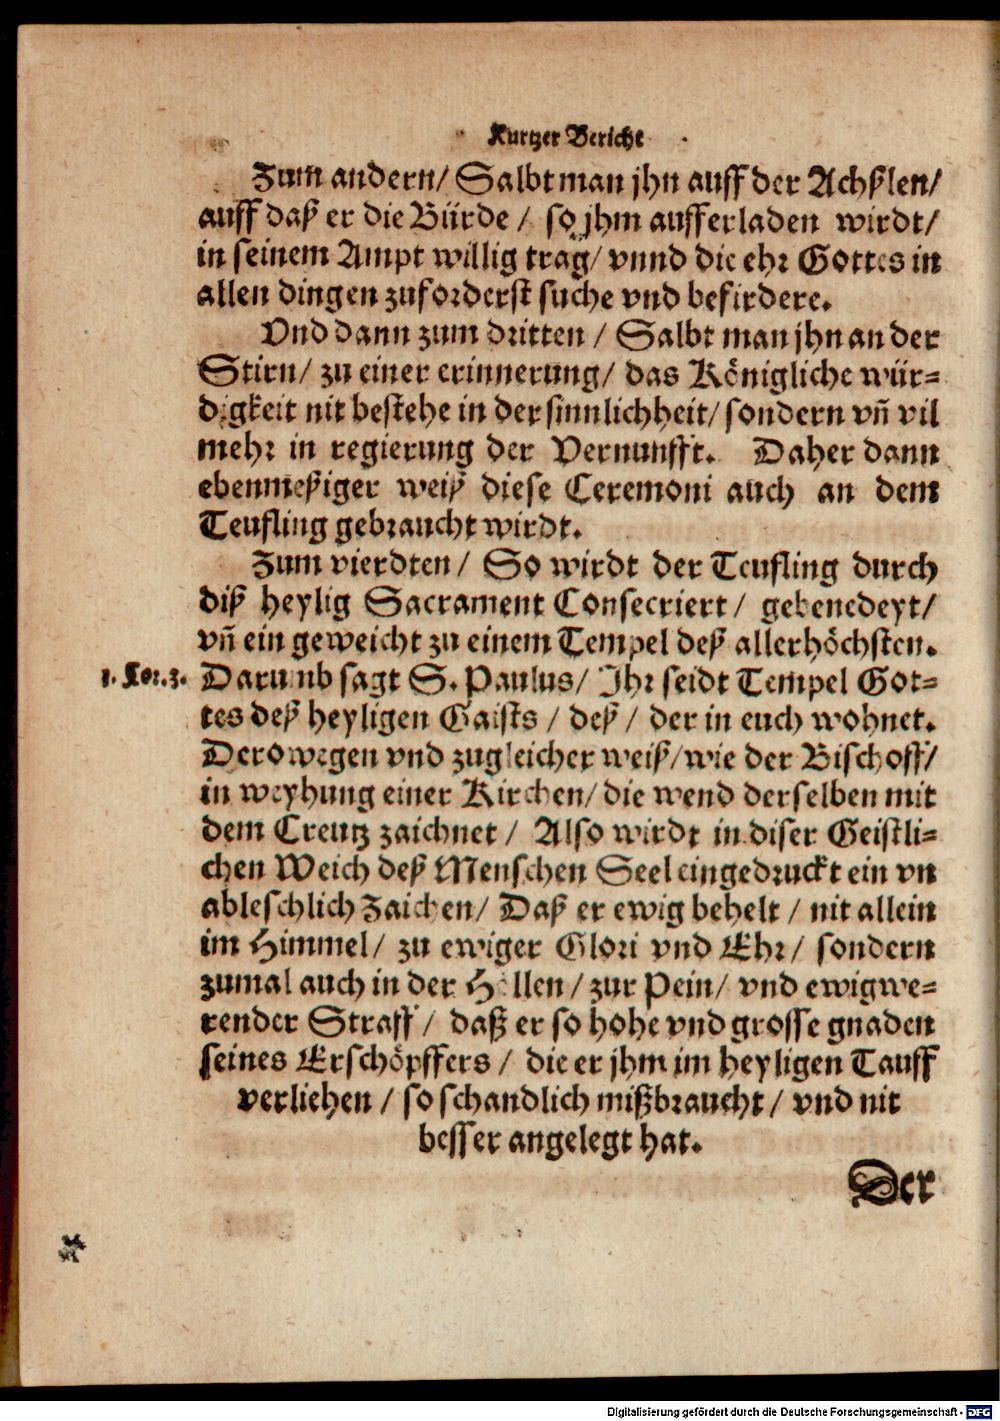 Kurtzer Bericht
Zum andern/ Salbt man jhn auff der Achßlen/
auff daß er die Bürde / so jhm aufferladen wirdt/
in seinem Ampt willig trag/ vnnd die ehr Gottes in
allen dingen zuforderst suche vnd befirdere.
Vnd dann zum dritten / Salbt man jhn an der
Stirn/ zu einer erinnerung/ das Königliche wür-
digkeit nit bestehe in der sinnlichheit/ sondern vñ vil
mehr in regierung der Vernunfft. Daher dann
ebenmeßiger weiß diese Ceremoni auch an dem
Teufling gebraucht wirdt.
Zum vierdten / So wirdt der Teufling durch
diß heylig Sacrament Consecriert / gebenedeyt/
vñ ein geweicht zu einem Tempel deß allerhöchsten.
1. Kor. 3. Darumb sagt S. Paulus/ Ihr seidt Tempel Got-
tes deß heyligen Gaists / deß / der in euch wohnet.
Derowegen vnd zugleicher weiß/ wie der Bischoff/
in weyhung einer Kirchen/ die wend derselben mit
dem Creutz zaichnet / Also wirdt in diser Geistli-
chen Weich deß Menschen Seel eingedruckt ein vn
ableschlich Zaichen/ Daß er ewig behelt / nit allein
im Himmel/ zu ewiger Glori vnd Ehr/ sondern
zumal auch in der Hellen / zur Pein/ vnd ewigwe-
render Straff / daß er so hohe vnd grosse gnaden
seines Erschöpffers / die er jhm im heyligen Tauff
verliehen / so schandlich mißbraucht / vnd nit
besser angelegt hat.
Der
Digitalisierung gefördert durch die Deutsche Forschungsgemeinschaft - DFG